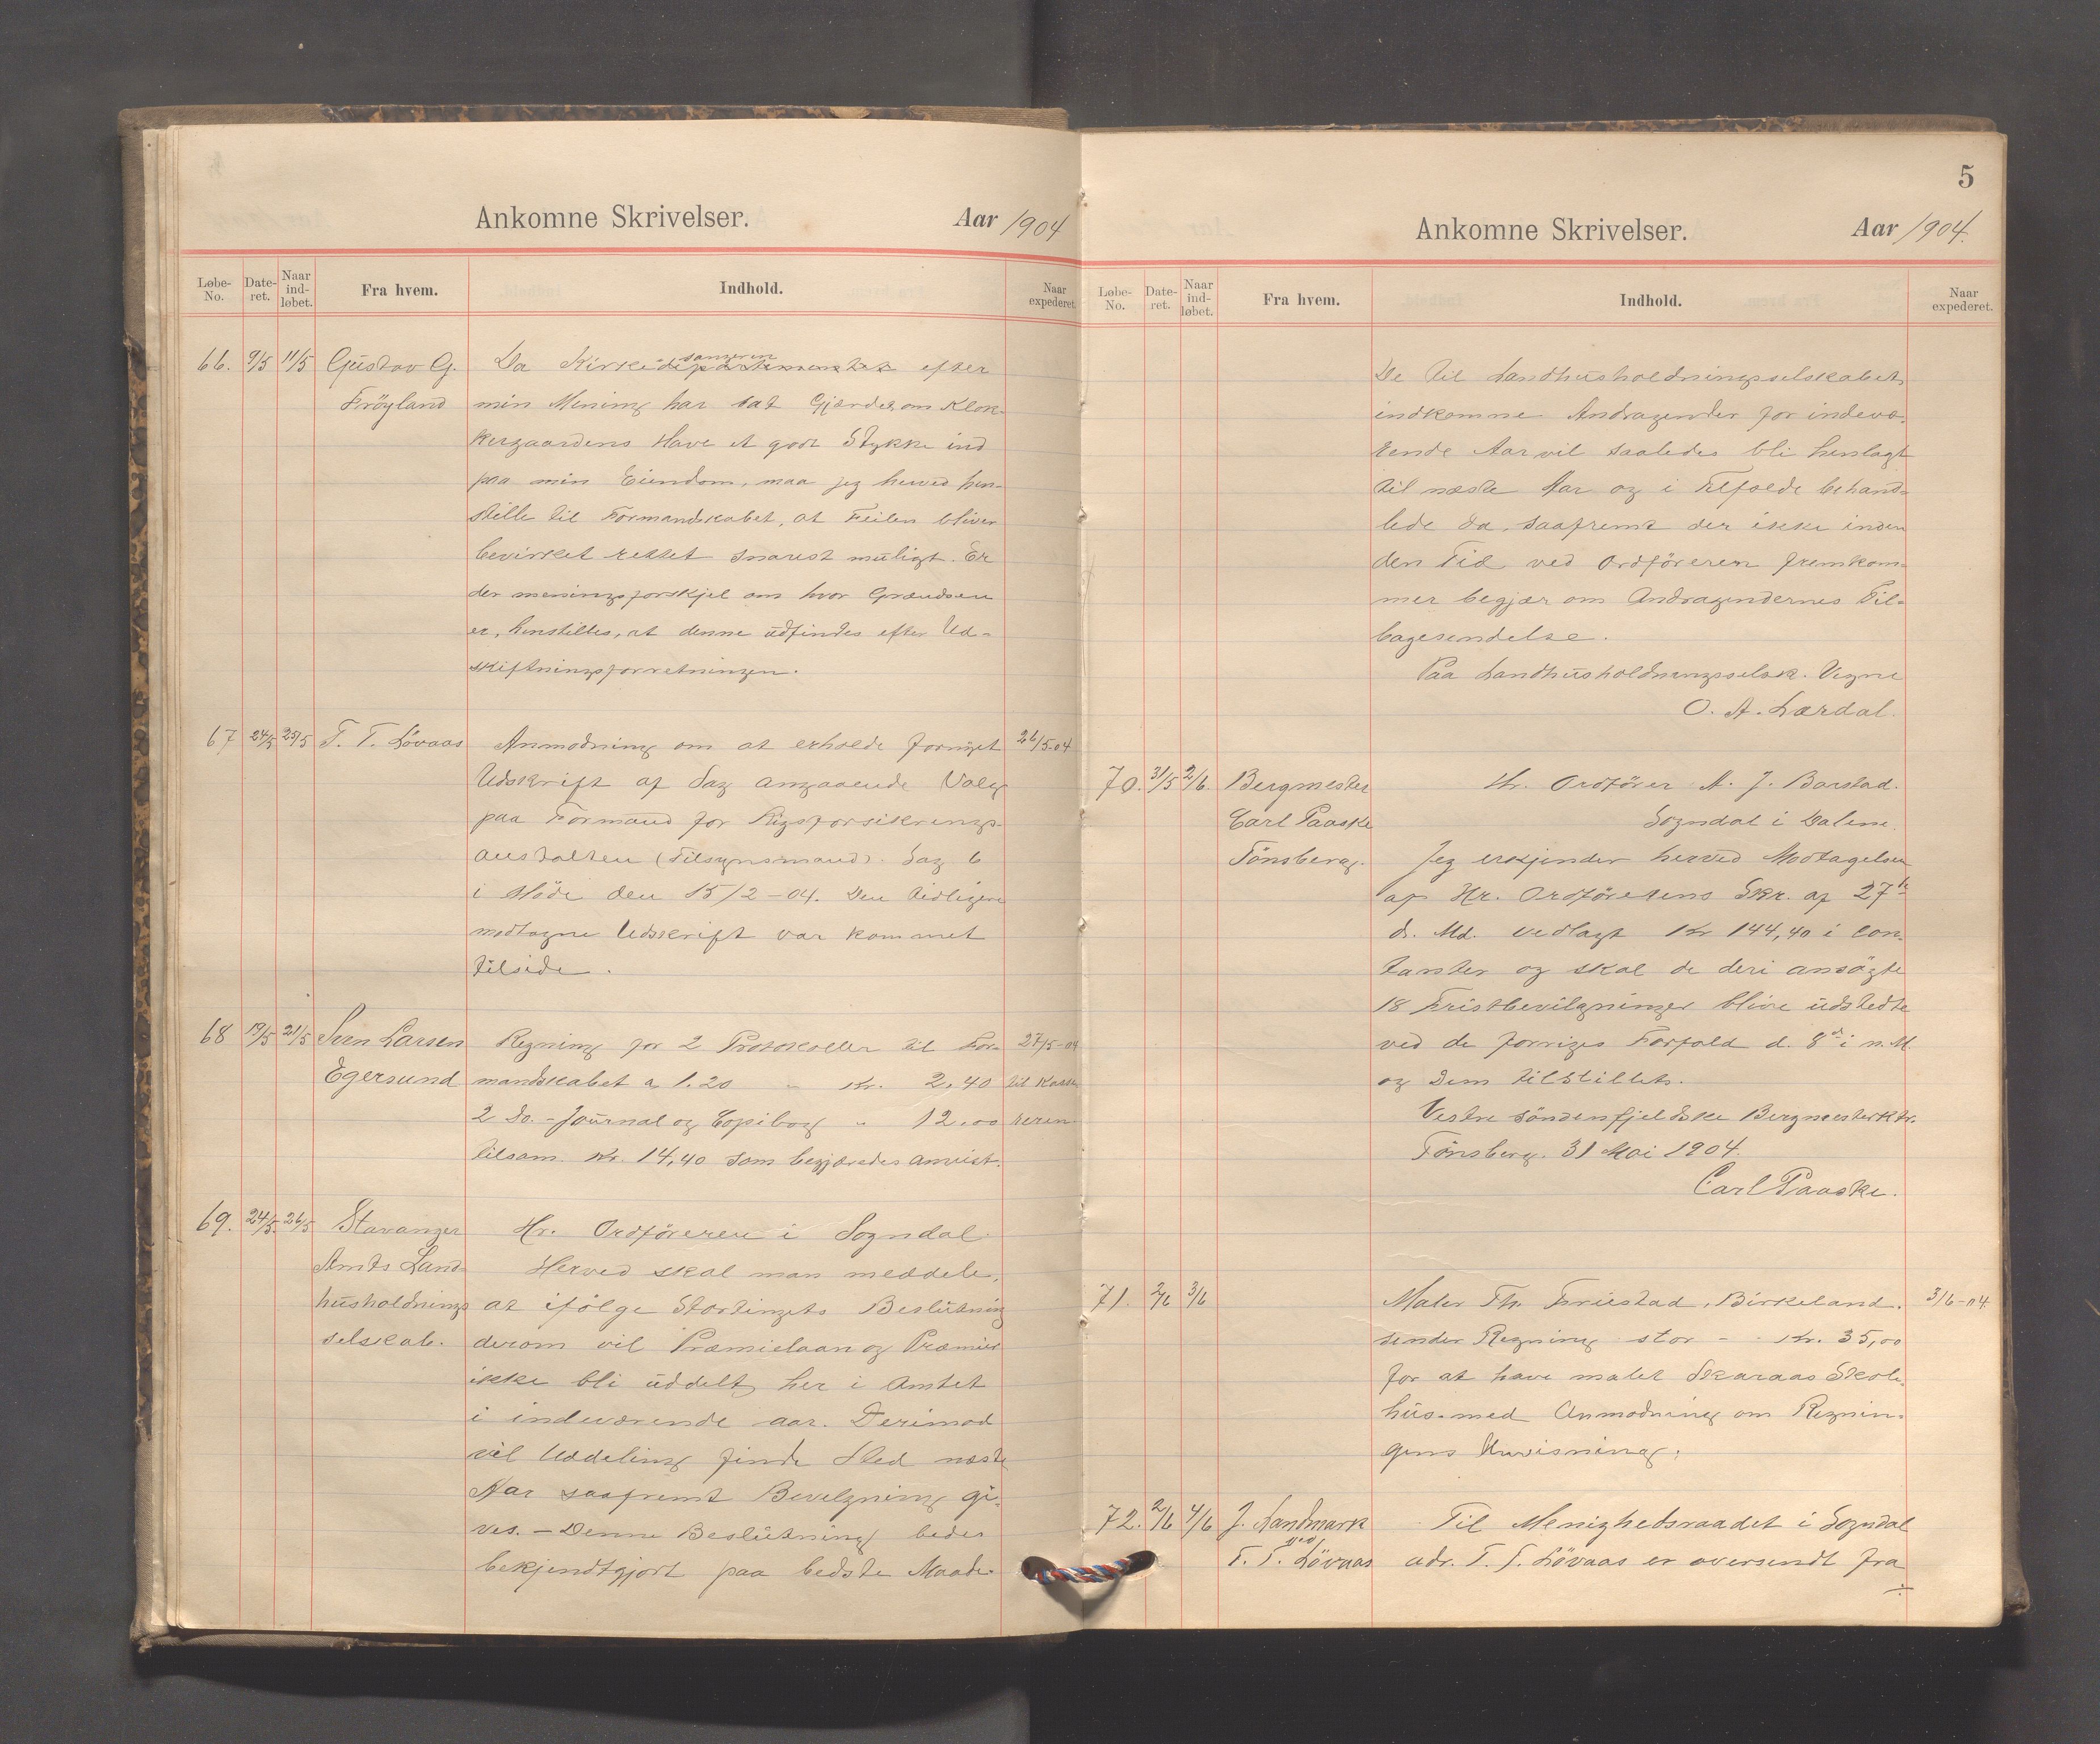 Ankomne Skrivelser. Aar 1904
Løbe-No. Date-ret. Naar ind-løbet. Fra hvem. Indhold. Naar expederet.
66. 9/5 11/5 Gustav G. Da Kirkedepartementet sangeren efter
Fröyland min Mening har sat Gjærdet om Klok-
kergaardens Have et godt Stykke ind
paa min Eiendom, maa jeg herved hen-
stille til Formandskabet, at Feilen bliver
bevirket rettet snarest muligt. Er
der meningsforskjel om hvor Grændsen
er, henstilles, at denne udfindes efter Ud-
skiftningsforretningen.
67 24/5 25/5 T. T. Lövaas Anmodning om at erholde fornyet 26/5-04
Udskrift af Sag angaaende Valg
paa Formand for Rigsforsikrings-
anstalten (Tilsynsmand). Sag 6
i Möde den 15/2-04. Den tidligere
modtagne Udskrift var kommet
tilside.
68 19/5 21/5 Sven Larsen Regning for 2 Protokoller til For- 27/5-04
Egersund mandskabet a 1.20 " Kr. 2,40 til Kasse-
2 Do. - Journal og Copibog " 12.00 reren
tilsam. Kr. 14,40 som begjæredes anvist.
69. 24/5. 26/5 Stavanger Hr. Ordföreren i Sogndal.
Amts Land- Herved skal man meddele,
husholdnings at ifölge Stortingets Beslutning
selskab. derom vil Præmielaan og Præmier
ikke bli uddelt her i Amtet
i indeværende aar. Derimod
vil Uddeling finde Sted næste
Aar saafremt Bevilgning gi-
ves. – Denne Beslutning bedes
bekjendtgjort paa bedste Maade.
5
Ankomne Skrivelser. Aar 1904.
Løbe-No. Date-ret. Naar ind-løbet. Fra hvem. Indhold. Naar expederet.
De til Landhusholdningsselskabet
indkomne Andragender for indevæ-
rende Aar vil saaledes bli henlagt
til næste Aar og i Tilfælde behand-
lede da, saafremt der ikke inden
den Tid ved Ordföreren fremkom-
mer begjær om Andragendernes Til-
bagesendelse.
Paa Landhusholdningsselsk. Vegne
O. A. Lærdal.
70. 31/5 2/6. Bergmester Hr. Ordförer A. J. Barstad.
Carl Paaske Sogndal i Dalene.
Tönsberg. Jeg erkjender herved Modtagelsen
af Hr. Ordförerens Skr. af 27de
ds. Md. vedlagt Kr 144,40 i Con-
tanter og skal de deri ansögte
18 Fristbevilgninger blive udstedte
ved de forriges Forfald d. 8de i n. M.
og Dem tilstillet.
Vestre söndenfjeldske Bergmesterktr.
Tönsberg. 31 Mai 1904.
Carl Paaske.
71. 2/6 3/6 Maler Th. Friestad, Birkeland. 3/6-04.
sender Regning stor - - Kr. 35,00
for at have malet Skaraas Skole-
hus. med Anmodning om Regnin-
gens Anvisning.
72. 2/6 4/6 J. Landmark Til Menighedsraadet i Sogndal
ved
T. T. Lövaas adr. T. T. Lövaas er oversendt fra
÷